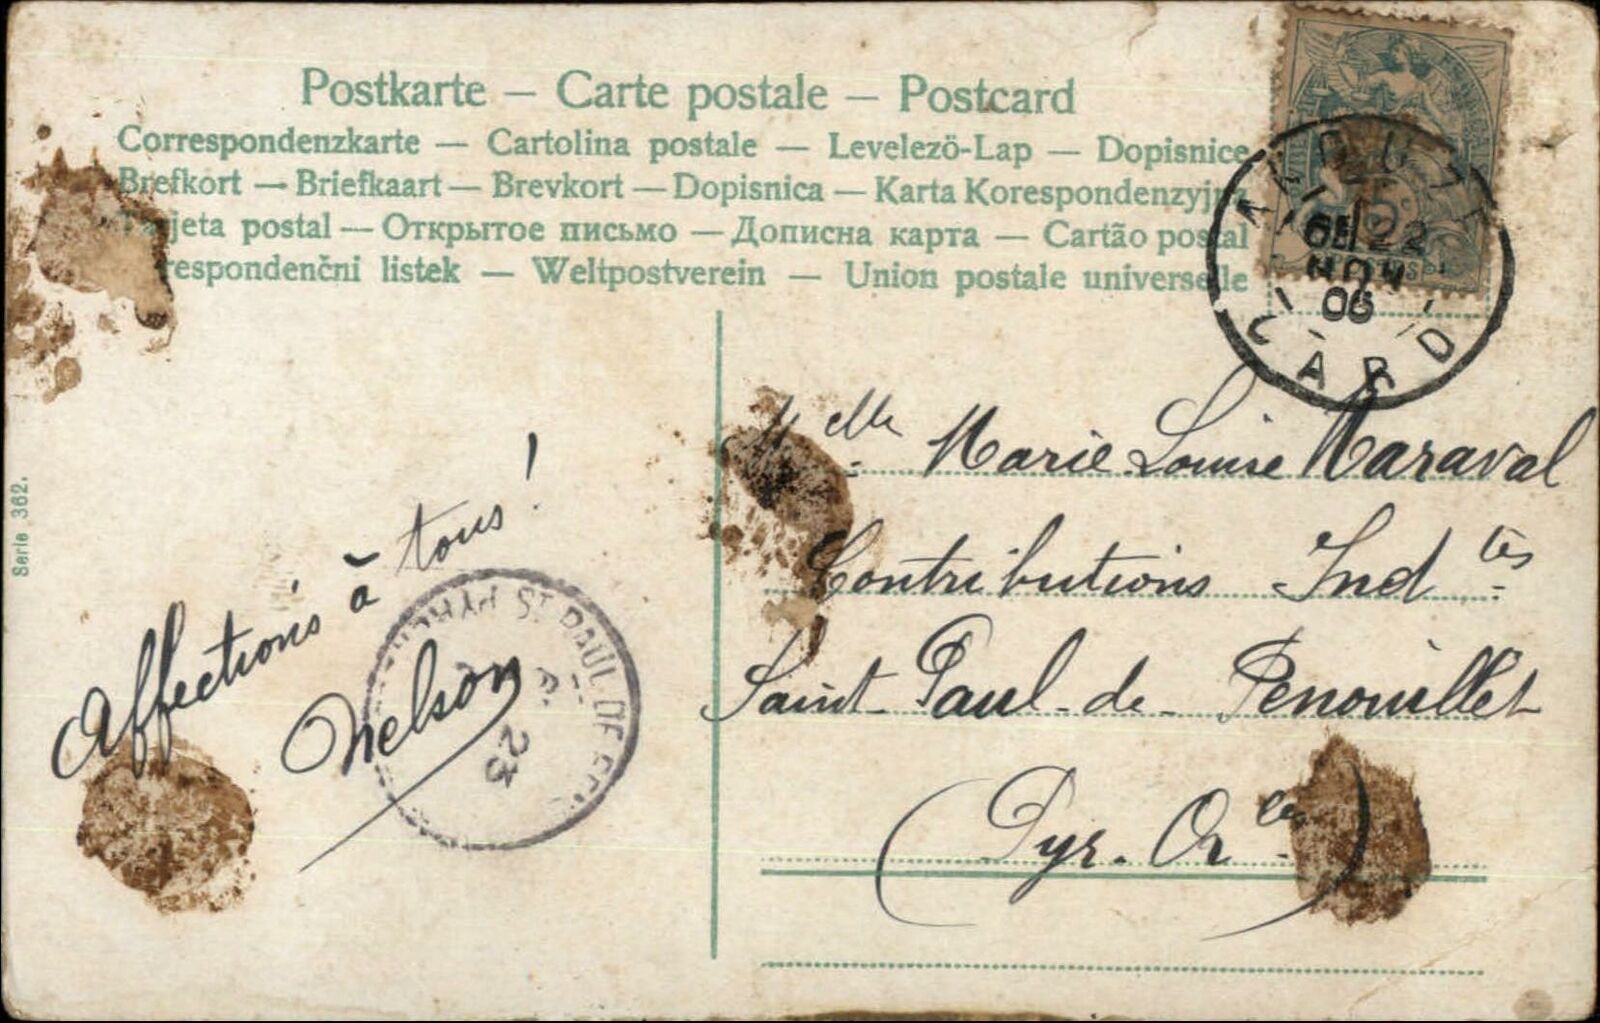 Postkarte — Carte postale — Postcard
Correspondenzkarte — Cartolina postale — Levelező-Lap — Dopisnice
Brefkort — Briefkaart — Brevkort — Dopisnica — Karta Korespondenzyjna
Tarjeta postal — Открытое письмо — Дописна карта — Cartão postal
respondenčni listek — Weltpostverein — Union postale universelle
22
06
GARD
Serie 362.
Affections à tous!
Nelson
ST PAUL DE
23
Melle Marie Louise Maraval
Contributions Indtes
Saint Paul-de-Fenouillet
(Pyr. Orles)